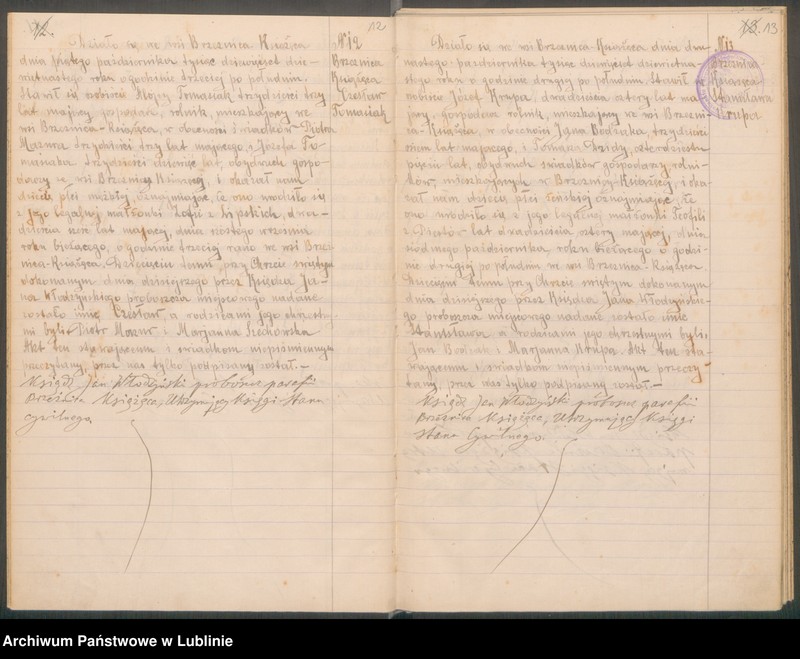 12.
12
Działo się we wsi Brzeznica Książca
dnia piątego października tysiąc dziewięćset dzie-
więtnastego roku o godzinie trzeciej po południu.
Stawił się osobiście Tomasiak trzydzieści trzy
lat mający gospodarz, rolnik, mieszkający we
wsi Brzeznica-Książca, w obecności świadków Piotra
Mazura trzydzieści trzy lat mającego i Józefa To-
trzydzieści dziewięć lat, obydwuch gospo-
darzy we wsi Brzeznicy Książcej, i okazał nam
dziecię płci męzkiej oznajmiając, że ono urodziło się
z jego legalnej małżonki Zofii z dwa-
dzieścia lat mającej, dnia szóstego września
roku bieżącego, o godzinie trzeciej rano we wsi Brze-
znica-Książca. Dziecięciu temu, przy Chrzcie świętym
dokonanym dnia dzisiejszego przez Księdza Ja-
na Włodzyńskiego proboszcza miejscowego nadane
zostało imię Czesław, a rodzicami jego chrzestny-
mi byli: Piotr Mazur i Marjanna
Akt ten stawającemu i świadkom niepiśmiennym
przeczytany, przez nas tylko podpisany został.—
Ksiądz Jan Włodzyński proboszcz parafii
Brzeźnica Książęca, Utrzymujący Księgi Stanu
Cywilnego.
N 12
Brzeznica
Książca
Czesław
Tomasiak
13
Działo się we wsi Brzeznica-Książca dnia dwu-
nastego października tysiąc dziewięćset dziewiętna-
stego roku o godzinie drugiej po południu. Stawił się
osobiście Józef Krupa, dwadzieścia cztery lat ma-
jący, gospodarz rolnik, mieszkający we wsi Brzezni-
ca-Książca, w obecności Jana Bodziaka, trzydzieści
lat mającego, i Tomasza czterdzieści
pięciu lat, obydwuch świadków gospodarzy rolni-
ków, mieszkających w Brzeznicy-Książcej, i oka-
zał nam dziecię płci żeńskiej oznajmiając, że
ono urodziło się z jego legalnej małżonki Teofili
z lat dwadzieścia cztery mającej, dnia
siódmego października, roku bieżącego o godzi-
nie drugiej po południu we wsi Brzeznica-Książca.
Dziecięciu temu przy Chrzcie świętym dokonanym
dnia dzisiejszego przez Księdza Jana Włodzyńskie-
go proboszcza miejscowego nadane zostało imię
Stanisława, a rodzicami jego chrzestnymi byli,
Jan Bodziak i Marjanna Krupa. Akt ten sta-
wającemu i świadkom niepiśmiennym przeczy-
tany, przez nas tylko podpisany został.—
Ksiądz Jan Włodzyński proboszcz parafii
Brzeźnica Książęca, Utrzymujący Księgi
Stanu Cywilnego.
N 13
Brzeznica
Książca
Stanisława
Krupa
Archiwum Państwowe w Lublinie